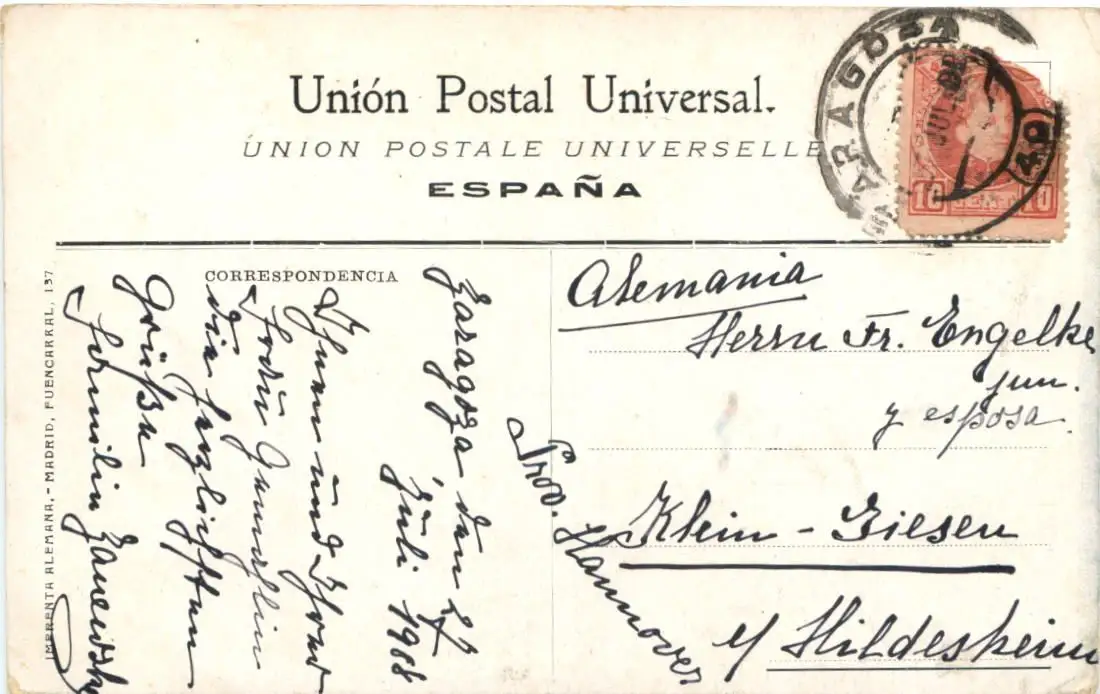 Unión Postal Universal.
UNION POSTALE UNIVERSELLE
ESPAÑA
ZARAGOZA
JUL
10 10
CORRESPONDENCIA
Zaragoza den
Juli 1908
Ihnen und Ihrer
Frau Gemahlin
die herzlichsten
Grüße
Familie
Alemania
Herrn Fr. Engelke
jun.
y esposa
Klein-Giesen
Prov. Hannover
e/ Hildesheim
IMPRENTA ALEMANA.- MADRID, FUENCARRAL, 137